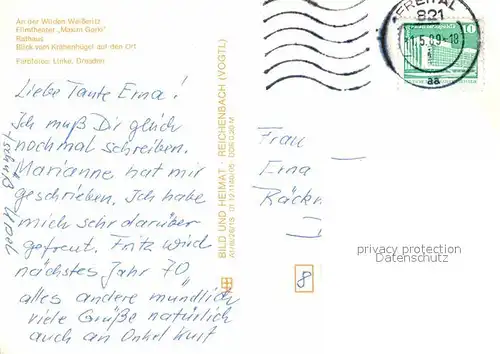 An der Wilden Weißeritz
Filmtheater „Maxim Gorki"
Rathaus
Blick vom Krähenhügel auf den Ort
Farbfotos: Linke, Dresden
Liebe Tante Erna!
Ich muß Dir gleich
nochmal schreiben.
Marianne hat mir
geschrieben. Ich habe
mich sehr darüber
gefreut. Fritz wird
nächstes Jahr 70
alles andere mündlich
viele Grüße natürlich
auch an Onkel Kurt
BILD UND HEIMAT · REICHENBACH (VOGTL)
FREITAL
821
11.5.89-18
aa
10
Frau
Erna
privacy protection
8